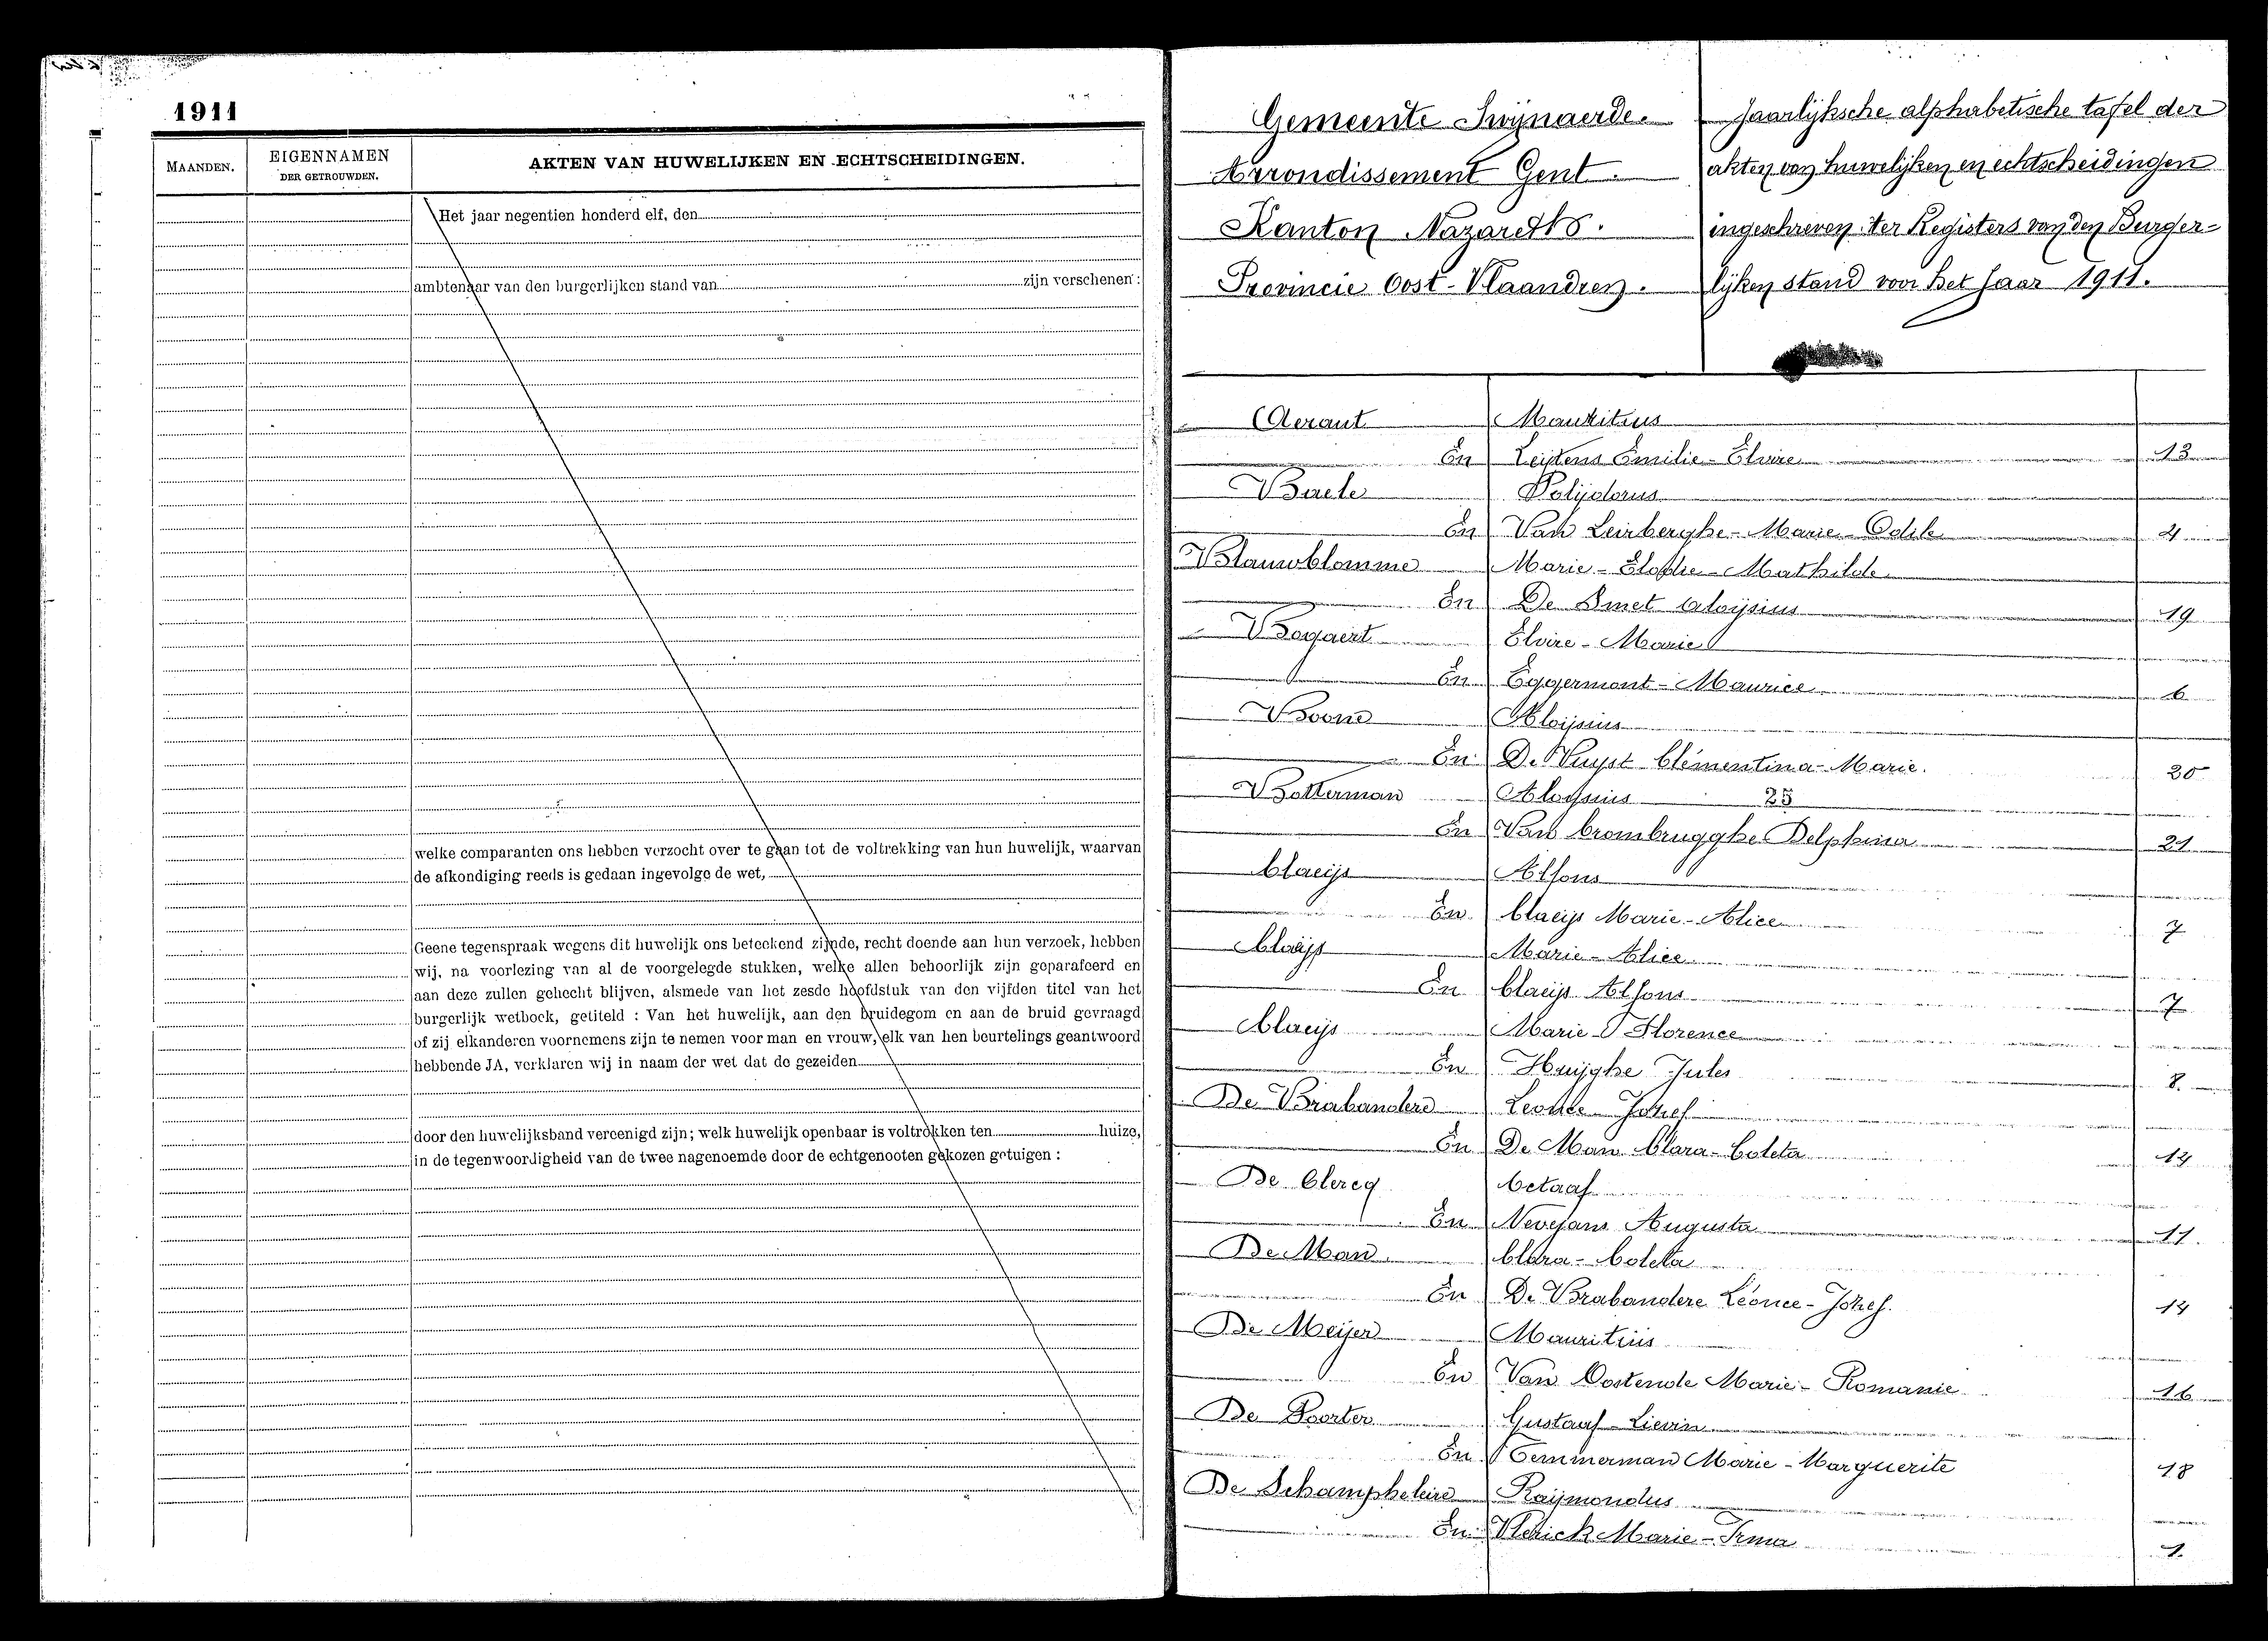 1911
MAANDEN.
EIGENNAMEN
DER GETROUWDEN.
AKTEN VAN HUWELIJKEN EN ECHTSCHEIDINGEN.
Het jaar negentien honderd elf, den
ambtenaar van den burgerlijken stand van zijn verschenen :
welke comparanten ons hebben verzocht over te gaan tot de voltrekking van hun huwelijk, waarvan
de afkondiging reeds is gedaan ingevolge de wet,
Geene tegenspraak wegens dit huwelijk ons beteekend zijnde, recht doende aan hun verzoek, hebben
wij, na voorlezing van al de voorgelegde stukken, welke allen behoorlijk zijn geparafeerd en
aan deze zullen gehecht blijven, alsmede van het zesde hoofdstuk van den vijfden titel van het
burgerlijk wetboek, getiteld : Van het huwelijk, aan den bruidegom en aan de bruid gevraagd
of zij elkanderen voornemens zijn te nemen voor man en vrouw, elk van hen beurtelings geantwoord
hebbende JA, verklaren wij in naam der wet dat de gezeiden
door den huwelijksband vereenigd zijn; welk huwelijk openbaar is voltrokken ten huize,
in de tegenwoordigheid van de twee nagenoemde door de echtgenooten gekozen getuigen :
Gemeente Swijnaerde.
Arrondissement Gent.
Kanton Nazareth.
Provincie Oost-Vlaandren.
Jaarlijksche alphabetische tafel der
akten van huwelijken en echtscheidingen
ingeschreven ter Registers van den Burger=
lijken stand voor het Jaar 1911.
Aeraut Mauritius
En Leijtens Emilie-Elvire 13
Baele Polijdorus
En Van Leirberghe-Marie-Odile 4
Blauwblomme Marie-Elodie-Mathilde
En De Smet Aloijsius 19
Bogaert Elvire-Marie
En Eggermont-Maurice 6
Boone Aloijsius
En De Vuyst Clémentina-Marie. 20
Botterman Aloysius 25
En Van Crombrugghe Delphina 21
Claeijs Alfons
En Claeijs Marie-Alice 7
Claeijs Marie-Alice
En Claeijs Alfons 7
Claeijs Marie Florence
En Huijghe Jules 8.
De Brabandere Leonce Jozef
En De Man Clara-Coleta 14
De Clercq Octaaf
En Nevejans Augusta 11.
De Man Clara-Coleta
En De Brabandere Léonce-Jozef. 14
De Meijer Mauritius
En Van Oostende Marie-Romanie 16
De Poorter Gustaaf-Lievin
En Temmerman Marie-Marguerite 18
De Schampheleire Raijmondus
En Vlerick Marie-Irma 1.